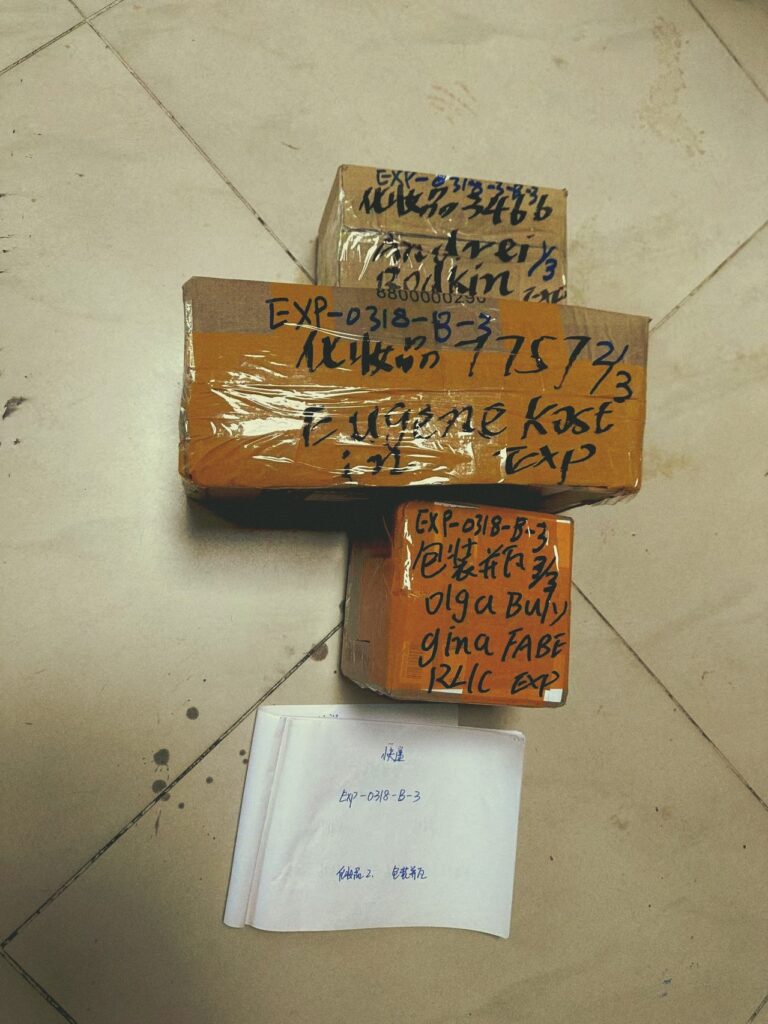 EXP-0318-B-3
化妆品 3466
Andrei 1/3
Bodkin EXP
6800000290
EXP-0318-B-3
化妆品 7757 2/3
Eugene Kost
in EXP
EXP-0318-B-3
包装并瓦 3/3
Olga Buly
gina FABE
RLIC EXP
快递
Exp-0318-B-3
化妆品2. 包装并瓦